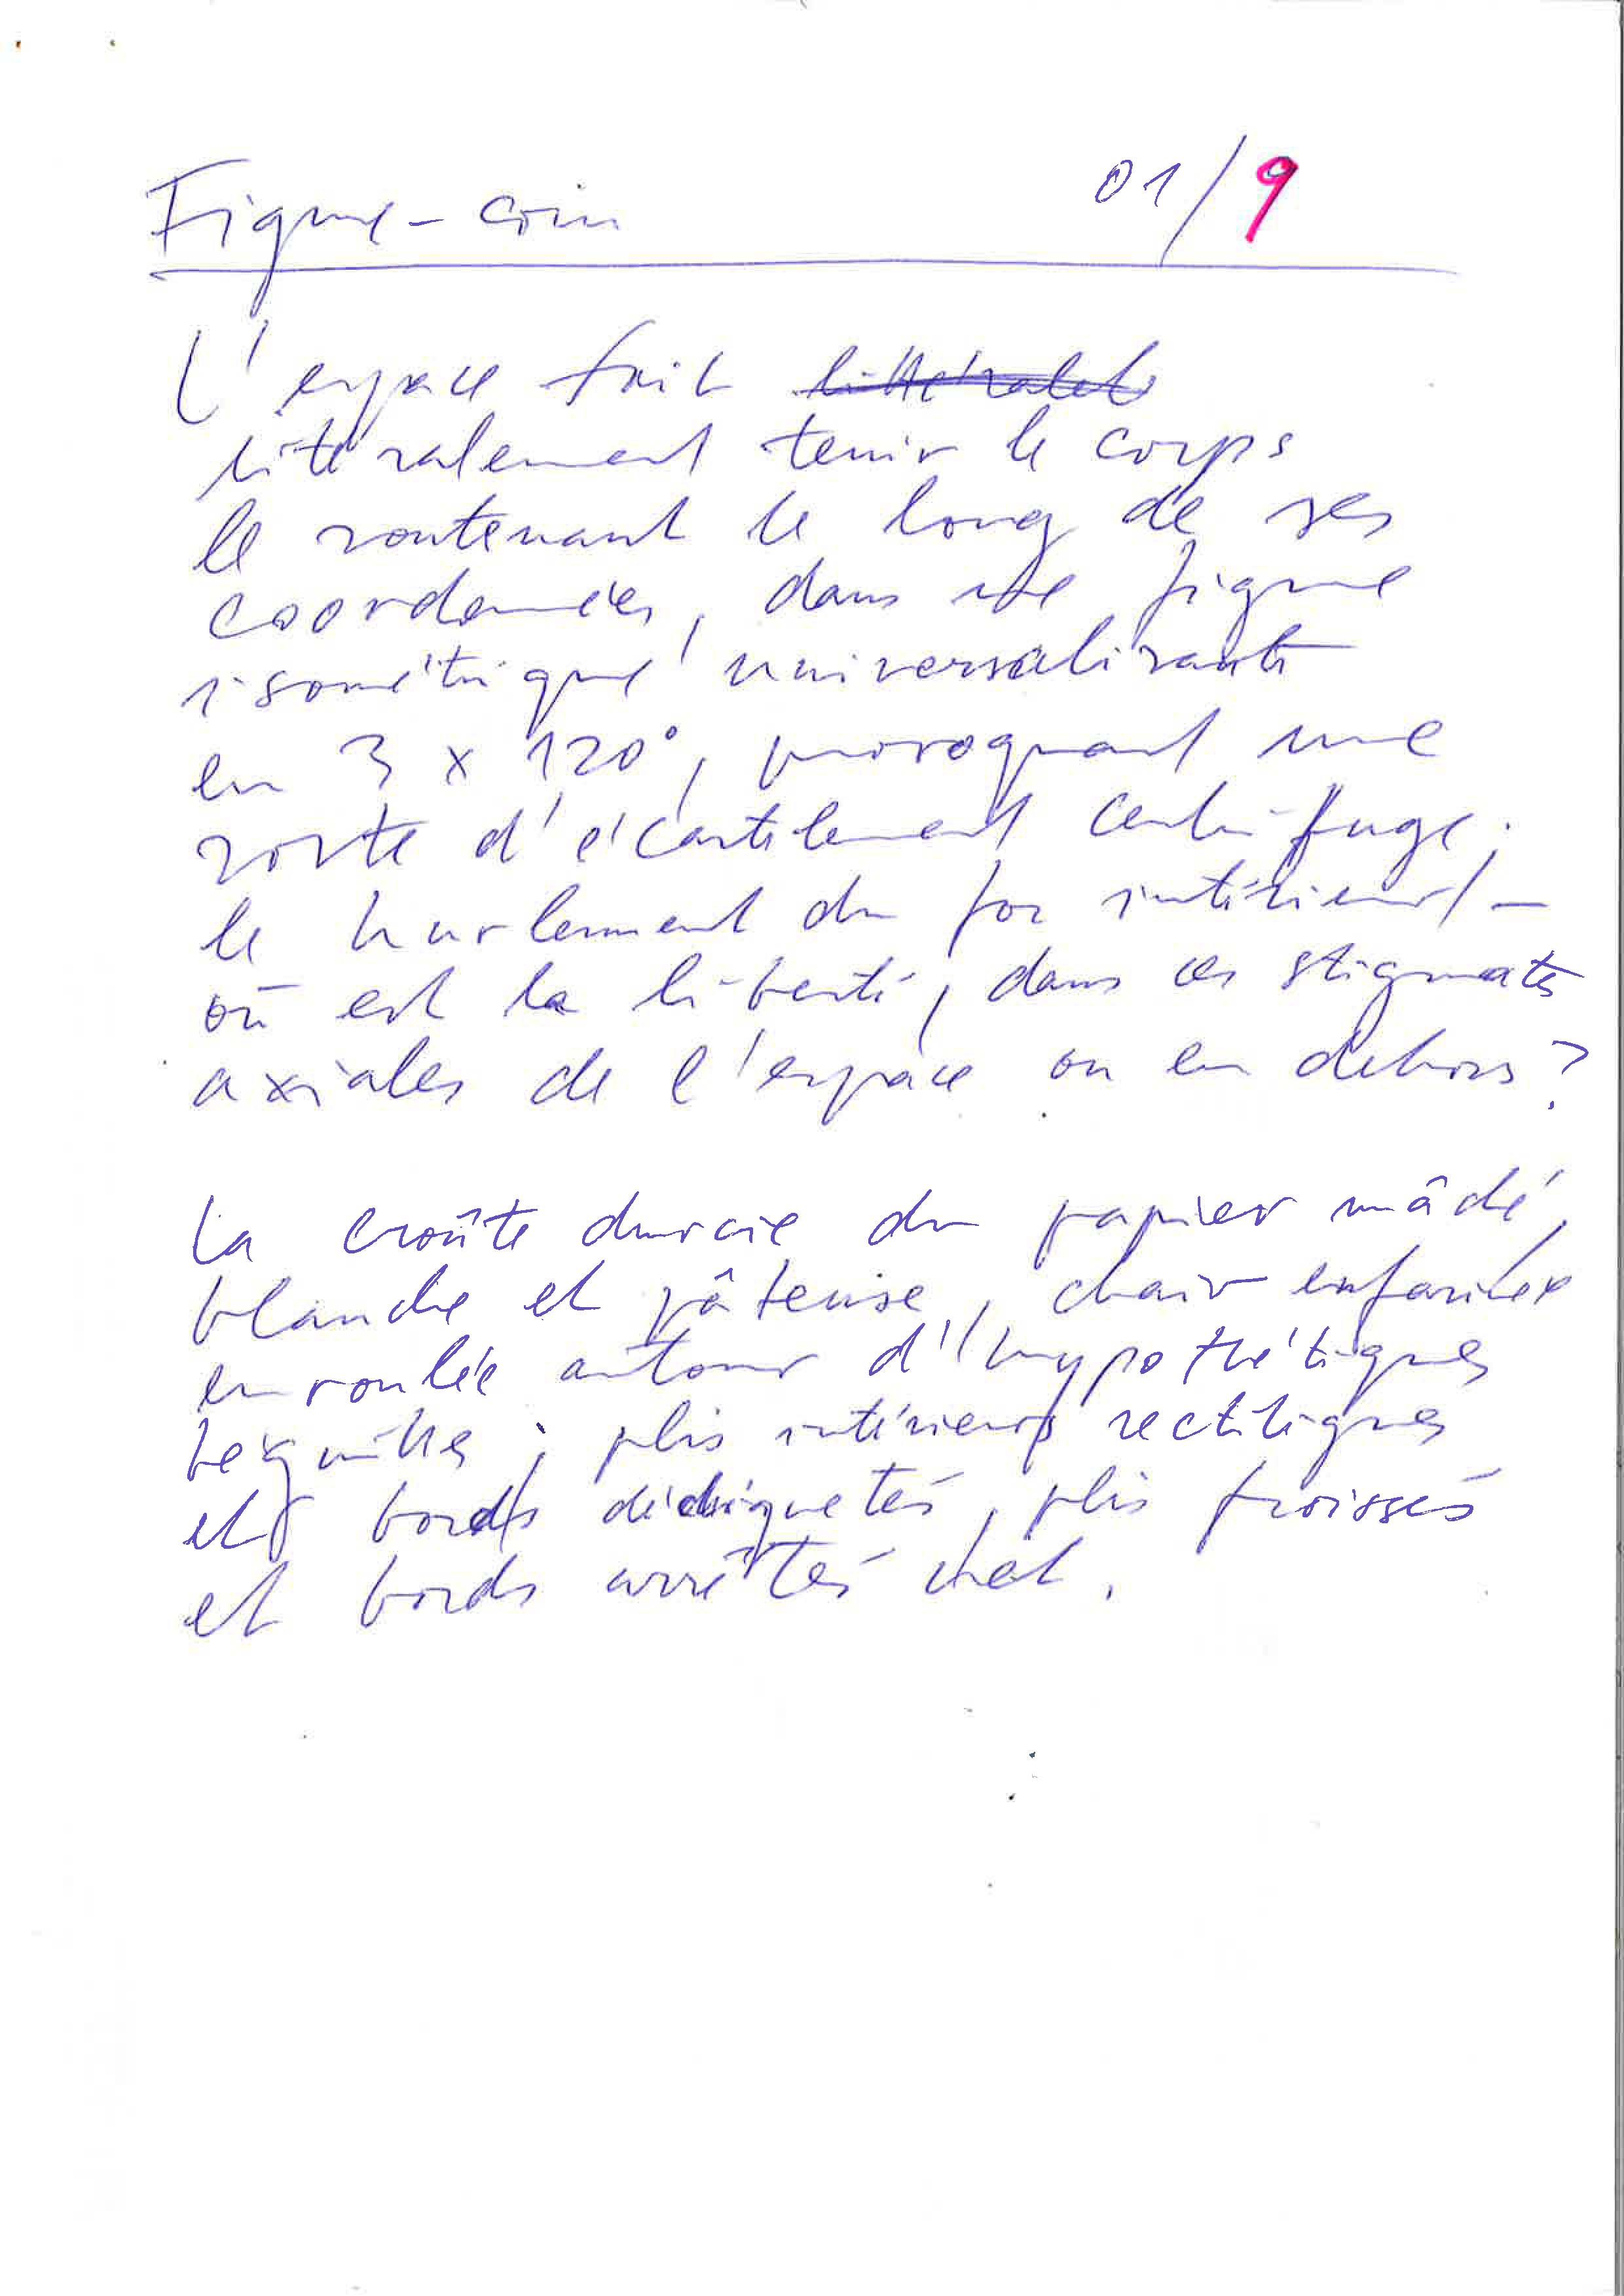 Figure-coin 01/9
L'espace fait littéralet
littéralement tenir le corps
le soutenant le long de ses
coordonnées, dans une figure
isométrique universalisante
en 3 x 120°, provoquant une
sorte d'écartèlement centrifuge;
le hurlement du for intérieur/-
où est la liberté, dans ces stigmates
axiales de l'espace ou en dehors?
La croûte durcie du papier mâché,
blanche et pâteuse, chair enfarinée
enroulée autour d'hypothétiques
béquilles; plis intérieurs rectilignes
et bords déchiquetés, plis froissés
et bords arrêtés net.